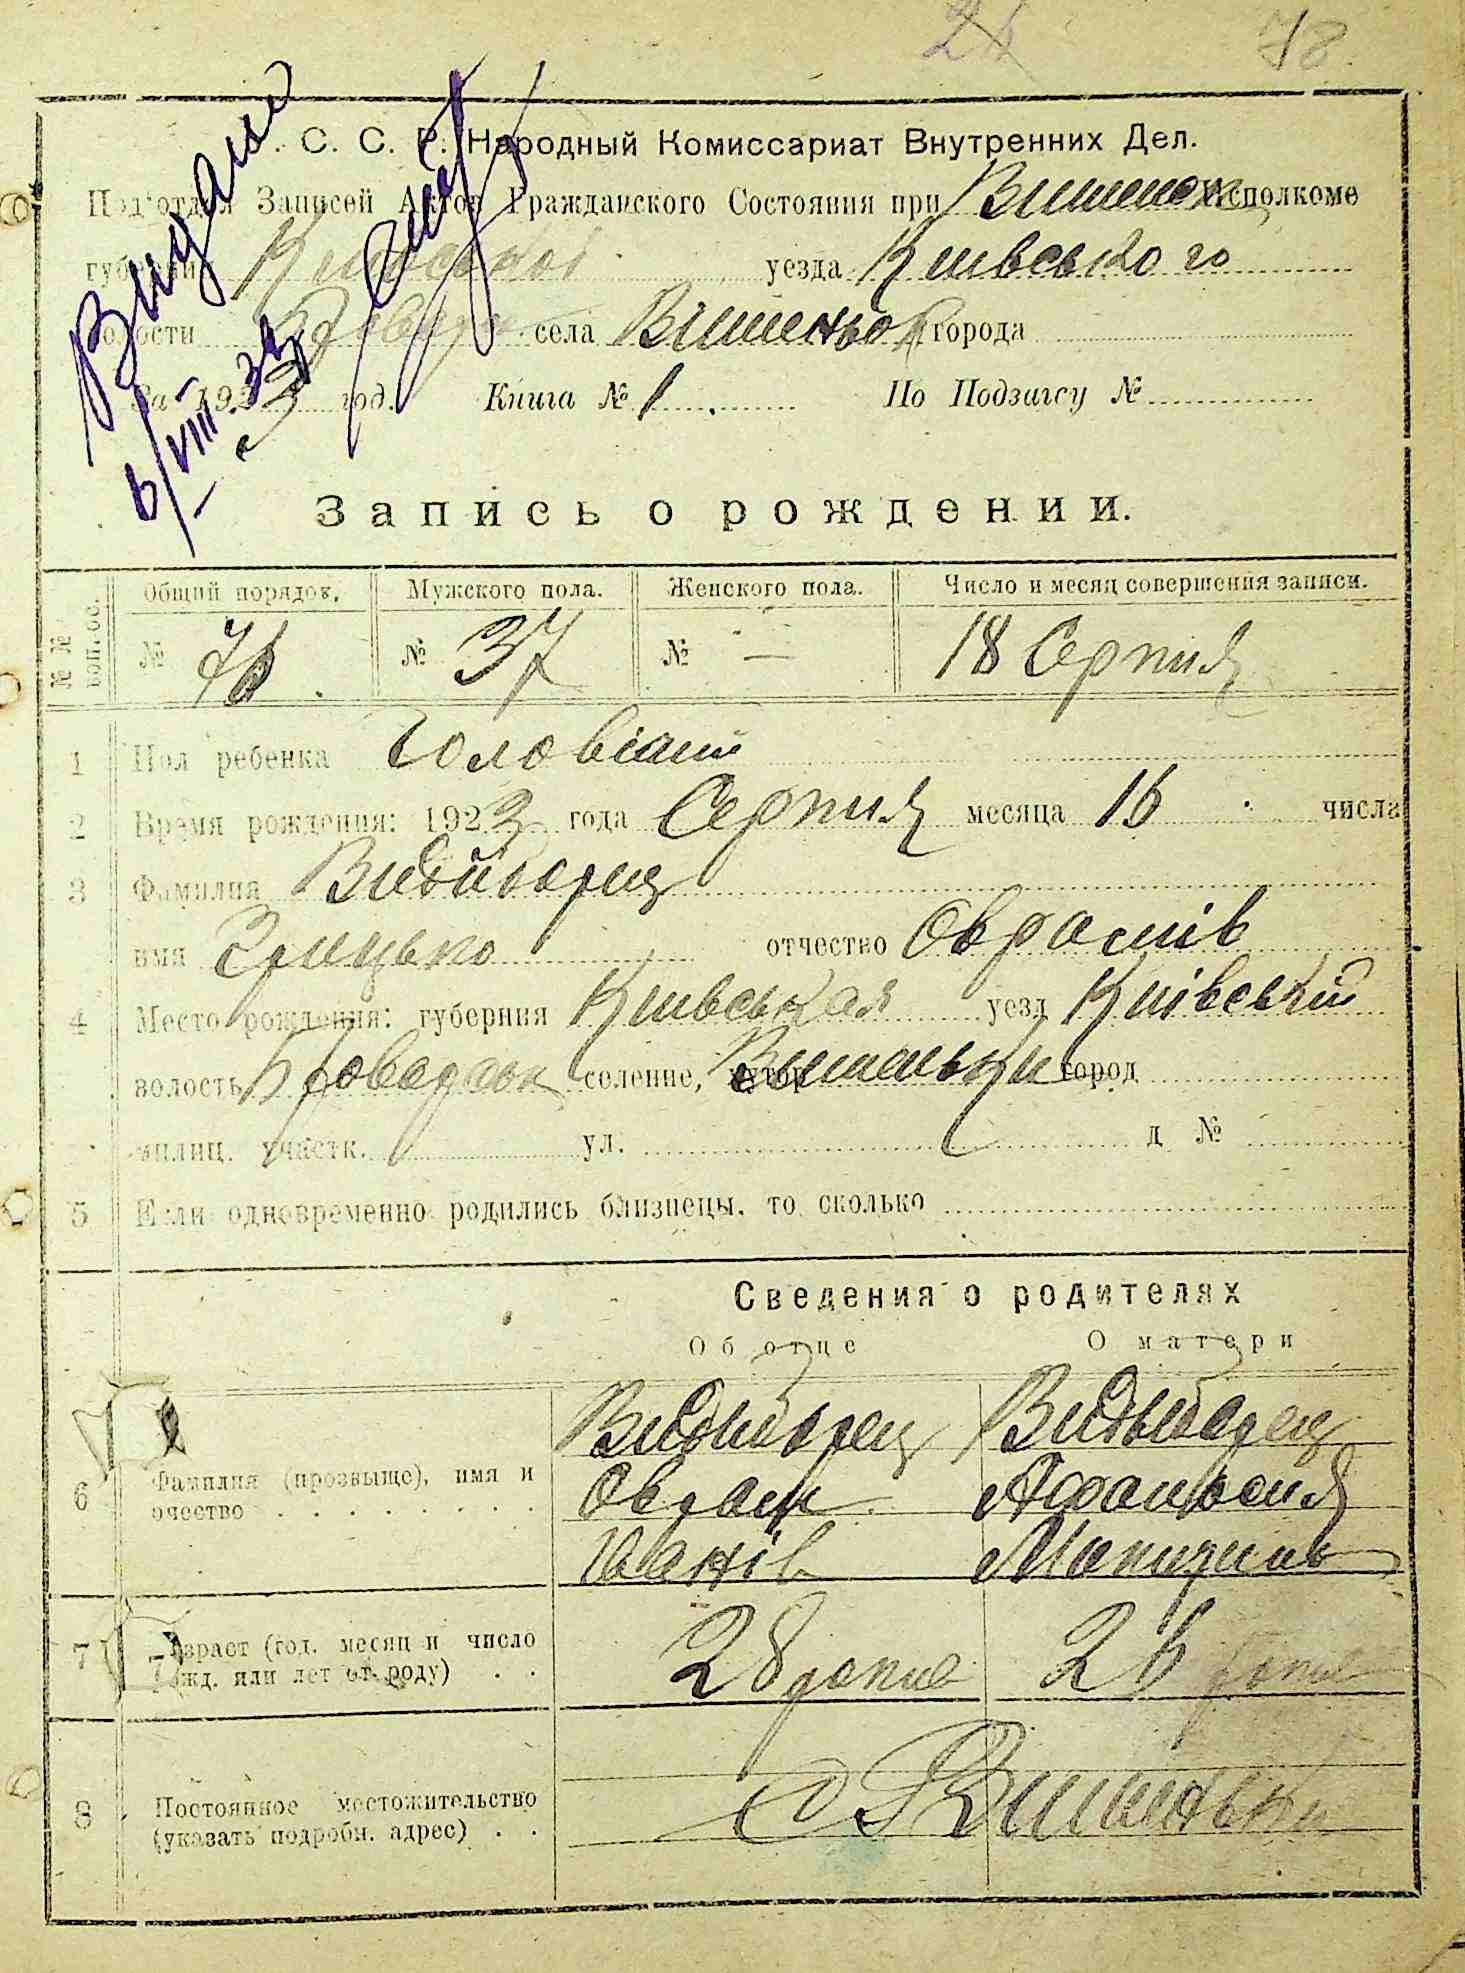 78
С. С. Р. Народный Комиссариат Внутренних Дел.
Подотдел Записей Актов Гражданского Состояния при Вишеньск Исполкоме
губернии Київської уезда Київського
волости села Вішеньок города
За 1923 год. Книга № 1. По Подзагсу №
Видано
6/VIII 32
Запись о рождении.
№№ воп.ос. Общий порядок. Мужского пола. Женского пола. Число и месяц совершения записи.
№ 76. № 37 № — 18 Серпня
1 Пол ребенка Чоловіачий
2 Время рождения: 1923 года Серпня месяца 16 числа
3 Фамилия Видйборец
имя Грицько отчество Оврамів
4 Место рождения: губерния Київськая уезд Київський
волость Броварськ селение, хутор Вишеньки город
милиц. участк. ул. д №
5 Если одновременно родились близнецы, то сколько
Сведения о родителях
Об отце О матери
Видиборец Видыборец
6 Фамилия (прозвыще), имя и очество Оврам Афанасия
Іванів
7 Возраст (год, месяц и число рожд. или лет от роду) 28 років 26 років
8 Постоянное местожительство (указать подробн. адрес) с. Вишеньки